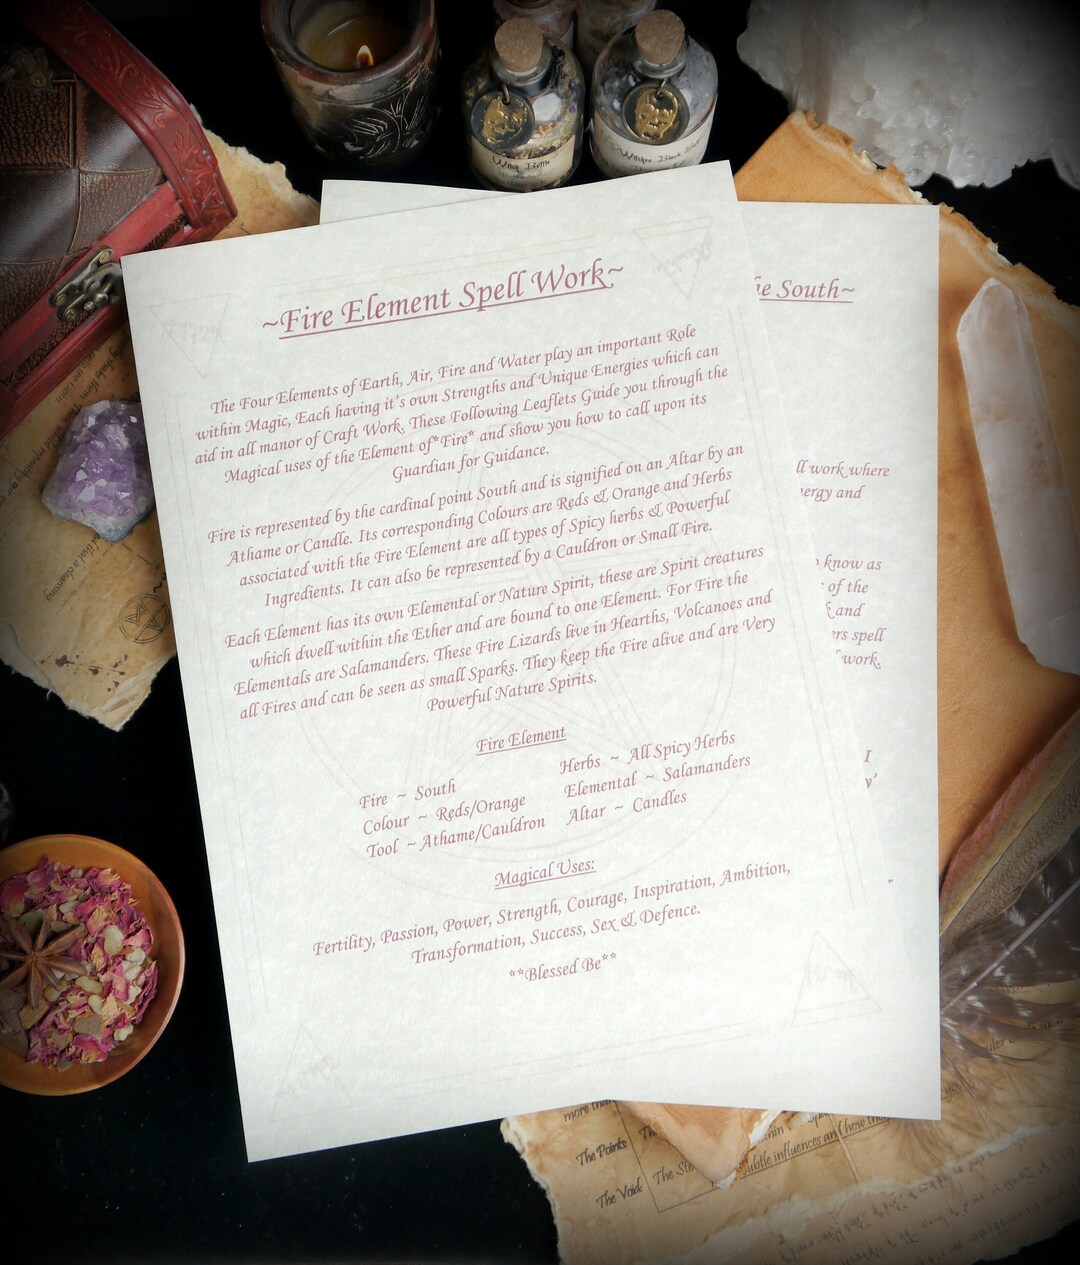 ~Fire Element Spell Work~
The Four Elements of Earth, Air, Fire and Water play an important Role
within Magic, Each having it's own Strengths and Unique Energies which can
aid in all manor of Craft Work. These Following Leaflets Guide you through the
Magical uses of the Element of*Fire* and show you how to call upon its
Guardian for Guidance.
Fire is represented by the cardinal point South and is signified on an Altar by an
Athame or Candle. Its corresponding Colours are Reds & Orange and Herbs
associated with the Fire Element are all types of Spicy herbs & Powerful
Ingredients. It can also be represented by a Cauldron or Small Fire.
Each Element has its own Elemental or Nature Spirit, these are Spirit creatures
which dwell within the Ether and are bound to one Element. For Fire the
Elementals are Salamanders. These Fire Lizards live in Hearths, Volcanoes and
all Fires and can be seen as small Sparks. They keep the Fire alive and are Very
Powerful Nature Spirits.
Fire Element
Fire ~ South
Colour ~ Reds/Orange
Tool ~ Athame/Cauldron
Herbs ~ All Spicy Herbs
Elemental ~ Salamanders
Altar ~ Candles
Magical Uses:
Fertility, Passion, Power, Strength, Courage, Inspiration, Ambition,
Transformation, Success, Sex & Defence.
**Blessed Be**
South~
work where
and
know as
of the
and
spell
work.
I
Witch Bottle
Witches Black Salt
The Points:
The Void:
subtle influences and how